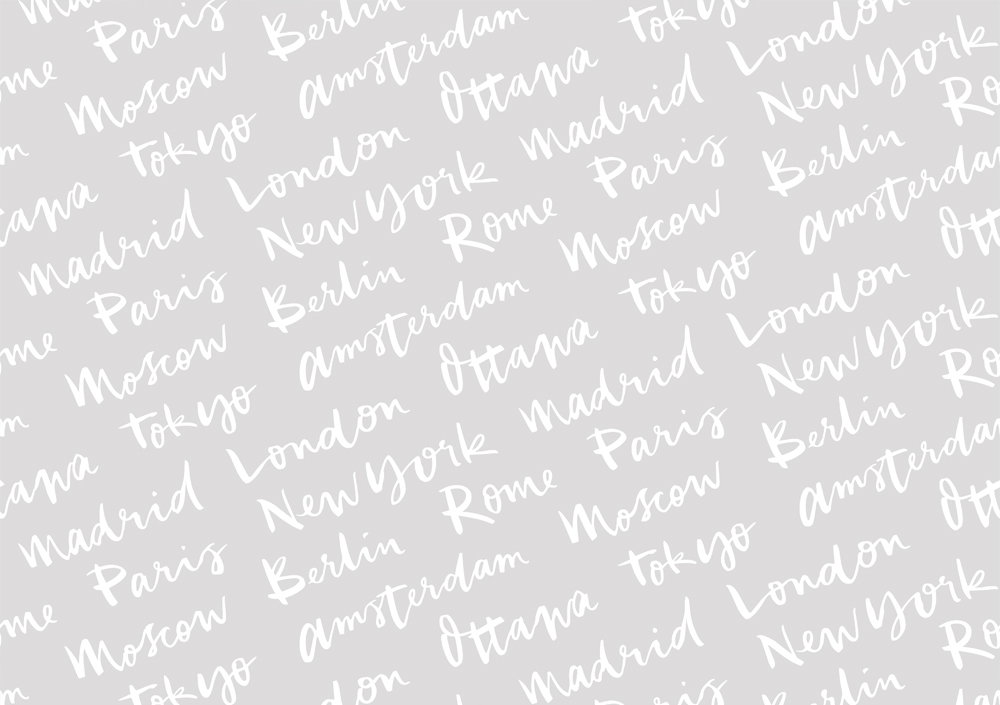 Ma
Paris
Berlin
Tokyo
London
Amsterdam
New York
ome
Moscow
Ottawa
Madrid
Ro
m
Tokyo
London
Paris
Berlin
Amsterda
tawa
New York
Rome
Moscow
Ott
Madrid
Tokyo
Paris
Berlin
London
Amsterdam
New York
ome
Moscow
Ottawa
Madrid
Ro
m
Tokyo
London
Paris
Berlin
Amsterda
tawa
New York
Rome
Moscow
Ott
Madrid
Tokyo
Paris
Berlin
London
Amsterdam
New York
ome
Moscow
Ottawa
Madrid
Ro
m
Tokyo
don
Paris
Berlin